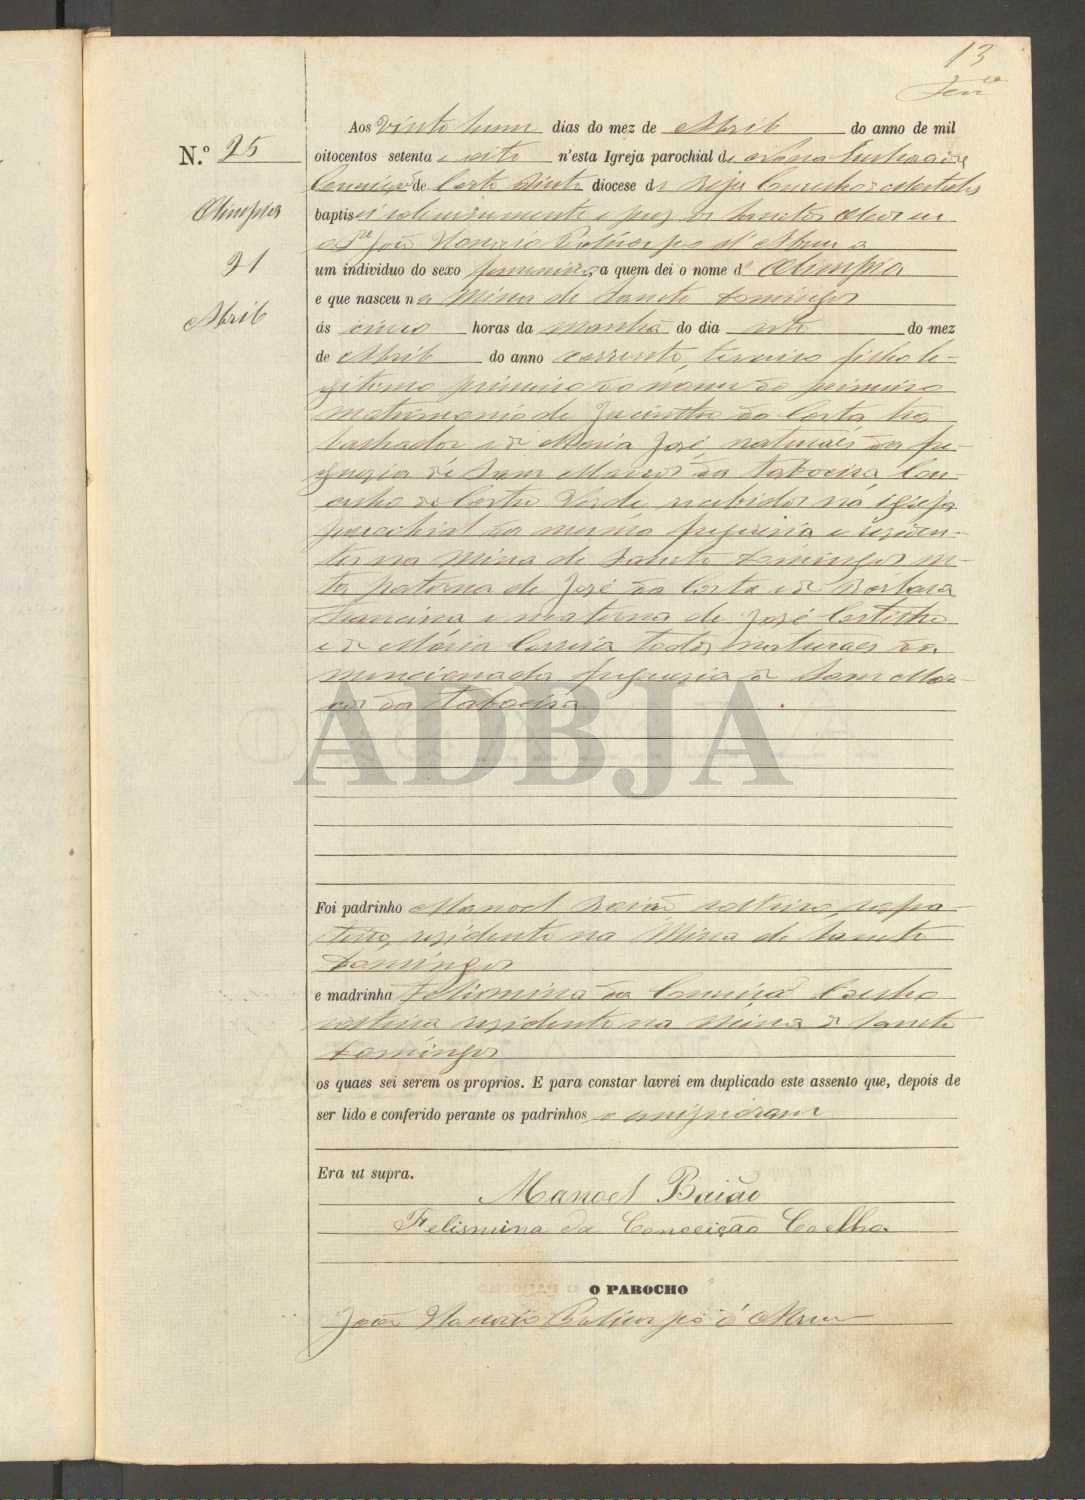 13
N.º 25
Olimpia
21
Abril
Aos vinte hum dias do mez de Abril do anno de mil
oitocentos setenta e oito n'esta Igreja parochial de
Conceição de Corte do Pinto diocese de Beja Concelho de Mertola
baptisei solemnemente e puz os Sanctos Oleos eu
o P.e João Nazario Policarpo d'Abreu a
um individuo do sexo femenino, a quem dei o nome de Olimpia
e que nasceu na Mina de Sancto Domingos
ás cinco horas da manhã do dia oito do mez
de Abril do anno corrente, terceiro filho le-
gitimo primeiro do nome do primeiro
matrimonio de Jacintho da Costa tra
balhador e de Maria José, naturaes da fre-
guezia de Sam Marcos da Taboeira Con-
celho de Castro Verde, recebidos na Igreja
parochial da mesma freguezia e residen-
tes na Mina de Sancto Domingos ne-
ta paterna de José da Costa e de Barbara
e materna de José
e de Maria Correia todos naturaes da
mencionada freguezia de Sam Mar-
cos da Taboeira
ADBJA
Foi padrinho Manoel Baião solteiro, sapa-
teiro, residente na Mina de Sancto
Domingos
e madrinha Felismina da Conceição Coelho
solteira residente na Mina de Sancto
Domingos
os quaes sei serem os proprios. E para constar lavrei em duplicado este assento que, depois de
ser lido e conferido perante os padrinhos o assignaram
Era ut supra.
Manoel Baião
Felismina da Conceição Coelho
O PAROCHO
João Nazario Policarpo d'Abreu